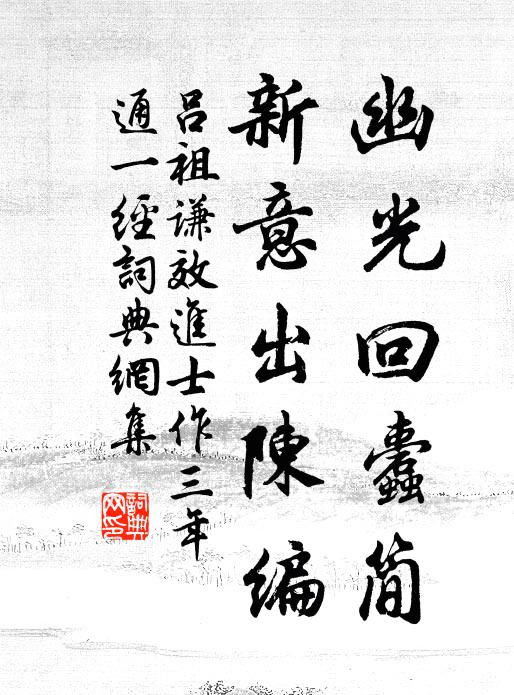 幽光回蠹简
新意出陳编
呂祖谦效進士作三年
通一經詞典網集
詞典
网印